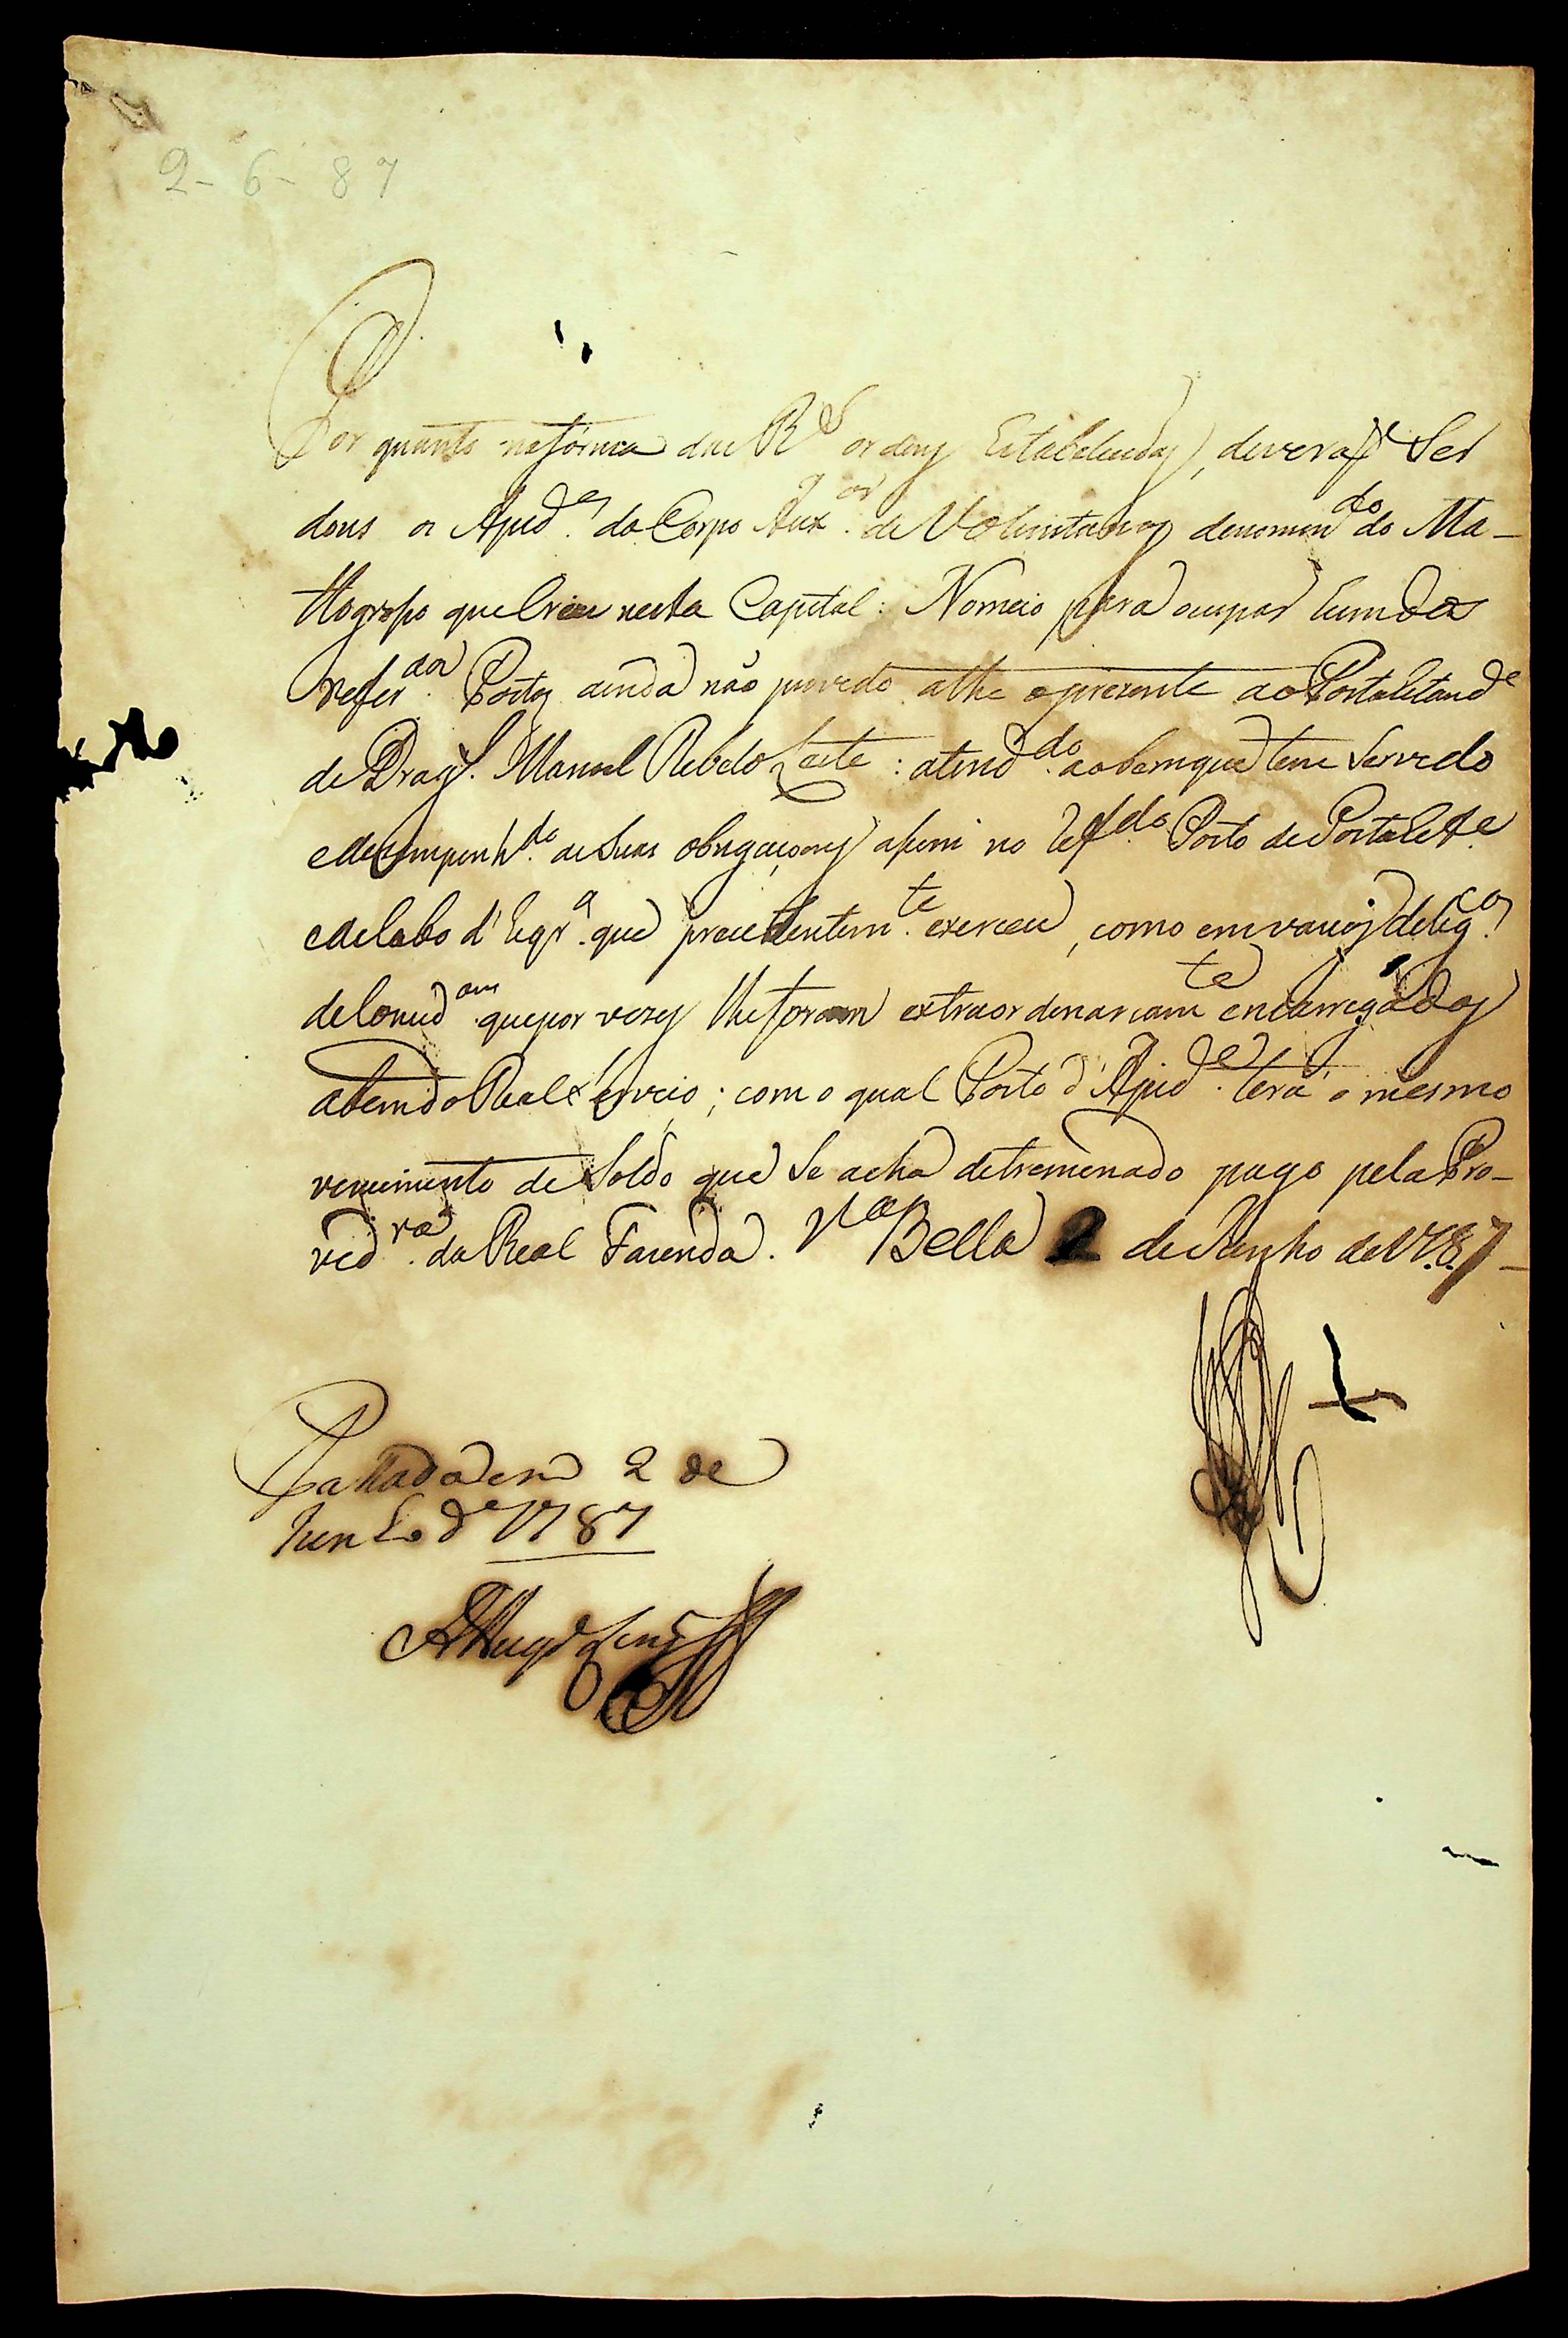 2-6-87
Por quanto na fórma das R.s ordens Estabelecidas, deveraõ Ser
dous os Ajud.es do Corpo Aux.ar de Voluntarios denomin.do do Ma-
ttogroço que Criei nesta Capital: Nomeio para ocupar hum dos
refer.dos Postos ainda não provido athe o prezente ao Portaestand.e
de Drag.s Manoel Rebelo Leite: atend.do ao bem que tem Servido
e desempenh.do as Suas obrigaçoens asim no ref.do Posto de Portaest.e
e de Cabo d'Esqr.a que precedentem.te exerceu, como em varias delig.as
de Comd.am que por vezes lhe foram extraordenariam.te encarregadas
a bem do Real Serviço; com o qual Posto d'Ajud.e terá o mesmo
vencimento de Soldo que Se acha detremenado pago pela Pro-
ved.ra da Real Fazenda. V.a Bella 2 de Junho de 1787-
Passada em 2 de
Junho d.e 1787